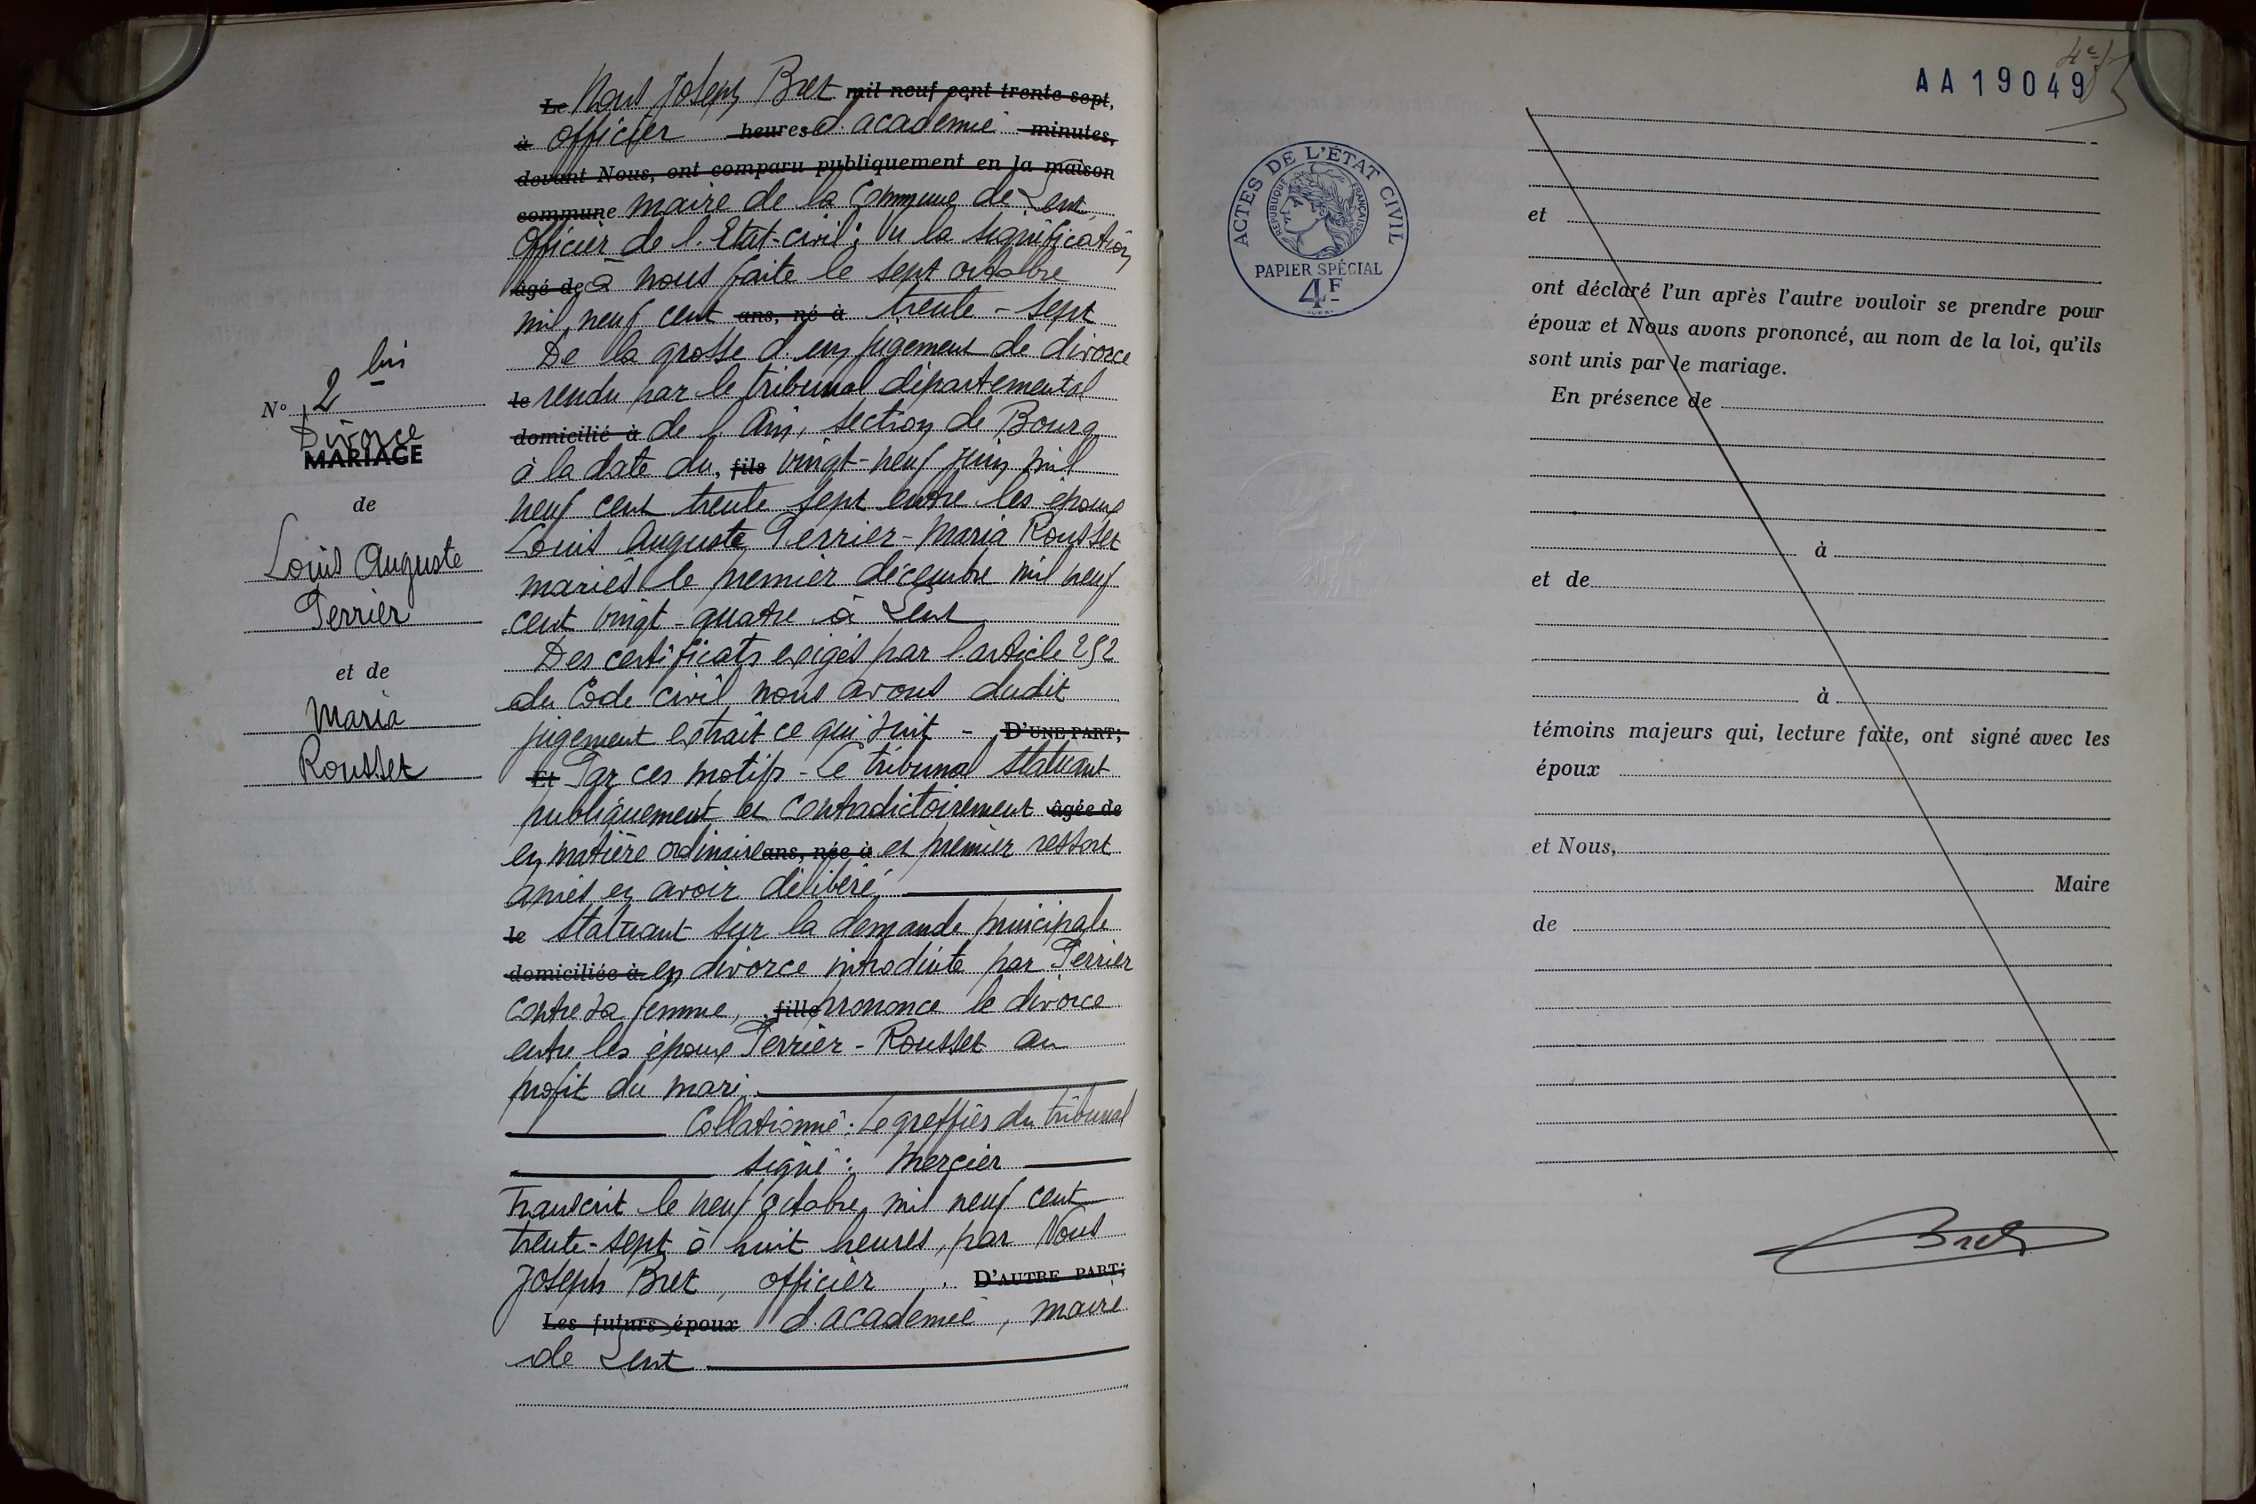 N° 2 bis
Divorce
MARIAGE
de
Louis Auguste
Perrier
et de
Maria
Rousset
Le Nous Joseph Bret mil neuf cent trente-sept,
à officier heures d'académie minutes,
devant Nous, ont comparu publiquement en la maison
commune maire de la Commune de Lent
Officier de l'Etat-civil ; Vu la signification
âgé de à nous faite le sept octobre
mil neuf cent ans, né à trente-sept
De la grosse d'un jugement de divorce
le rendu par le tribunal départemental
domicilié à de l'Ain, section de Bourg
à la date du fils vingt-neuf juin mil
neuf cent trente sept entre les époux
Louis Auguste Perrier - Maria Rousset
mariés le premier décembre mil neuf
cent vingt-quatre à Lent
Des certificats exigés par l'article 252
du Code civil nous avons dudit
jugement extrait ce qui suit - D'UNE PART;
Et Par ces motifs - Le tribunal statuant
publiquement et contradictoirement âgée de
en matière ordinaire ans, née à et premier ressort
après en avoir délibéré
le statuant sur la demande principale
domiciliée à en divorce introduite par Perrier
contre sa femme, fille prononce le divorce
entre les époux Perrier - Rousset au
profit du mari
Collationné : Le greffier du tribunal
signé : Mercier
Transcrit le neuf octobre mil neuf cent
trente-sept à huit heures, par Nous
Joseph Bret, officier D'AUTRE PART;
Les futurs époux d'académie, maire
de Lent
AA 19049
ACTES DE L'ÉTAT CIVIL
RÉPUBLIQUE FRANÇAISE
PAPIER SPÉCIAL
4F
et
ont déclaré l'un après l'autre vouloir se prendre pour
époux et Nous avons prononcé, au nom de la loi, qu'ils
sont unis par le mariage.
En présence de
à
et de
à
témoins majeurs qui, lecture faite, ont signé avec les
époux
et Nous,
Maire
de
Bret